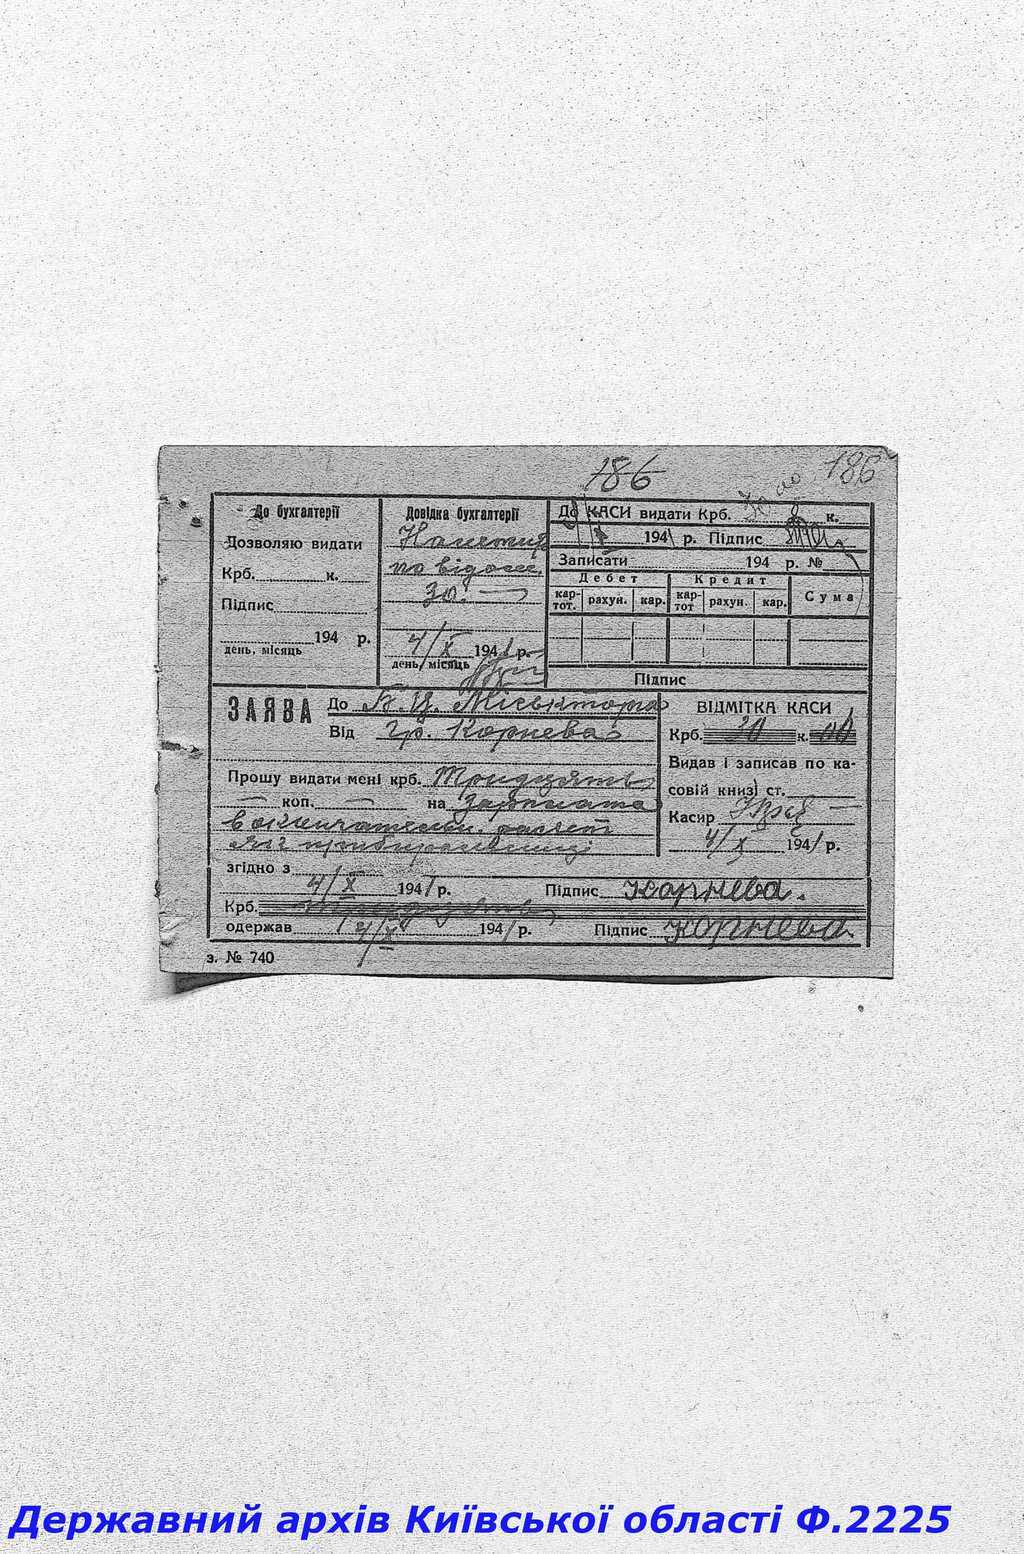 186 186
До бухгалтерії
Дозволяю видати
Крб. к.
Підпис
194 р.
день, місяць
Довідка бухгалтерії
по відом.
30. —
4/X 1941 р.
день, місяць
До КАСИ видати Крб. 30 00 к.
4/X 1941 р. Підпис
Записати 194 р. №
Дебет Кредит Сума
кар-тот. рахун. кар. кар-тот рахун. кар.
Підпис
ЗАЯВА До Б. Ц. Міськторга
Від гр. Корнева
Прошу видати мені крб. Тридцять
— коп. — на Зарплата
в окончательн. расчет
як прибиральниці
згідно з
4/X 1941 р. Підпис Корнева.
Крб. тридцять
одержав 4/X 1941 р. Підпис Корнева.
ВІДМІТКА КАСИ
Крб. 30 к. 00
Видав і записав по ка-
совій книзі ст.
Касир
4/X 1941 р.
з. № 740
Державний архів Київської області Ф.2225